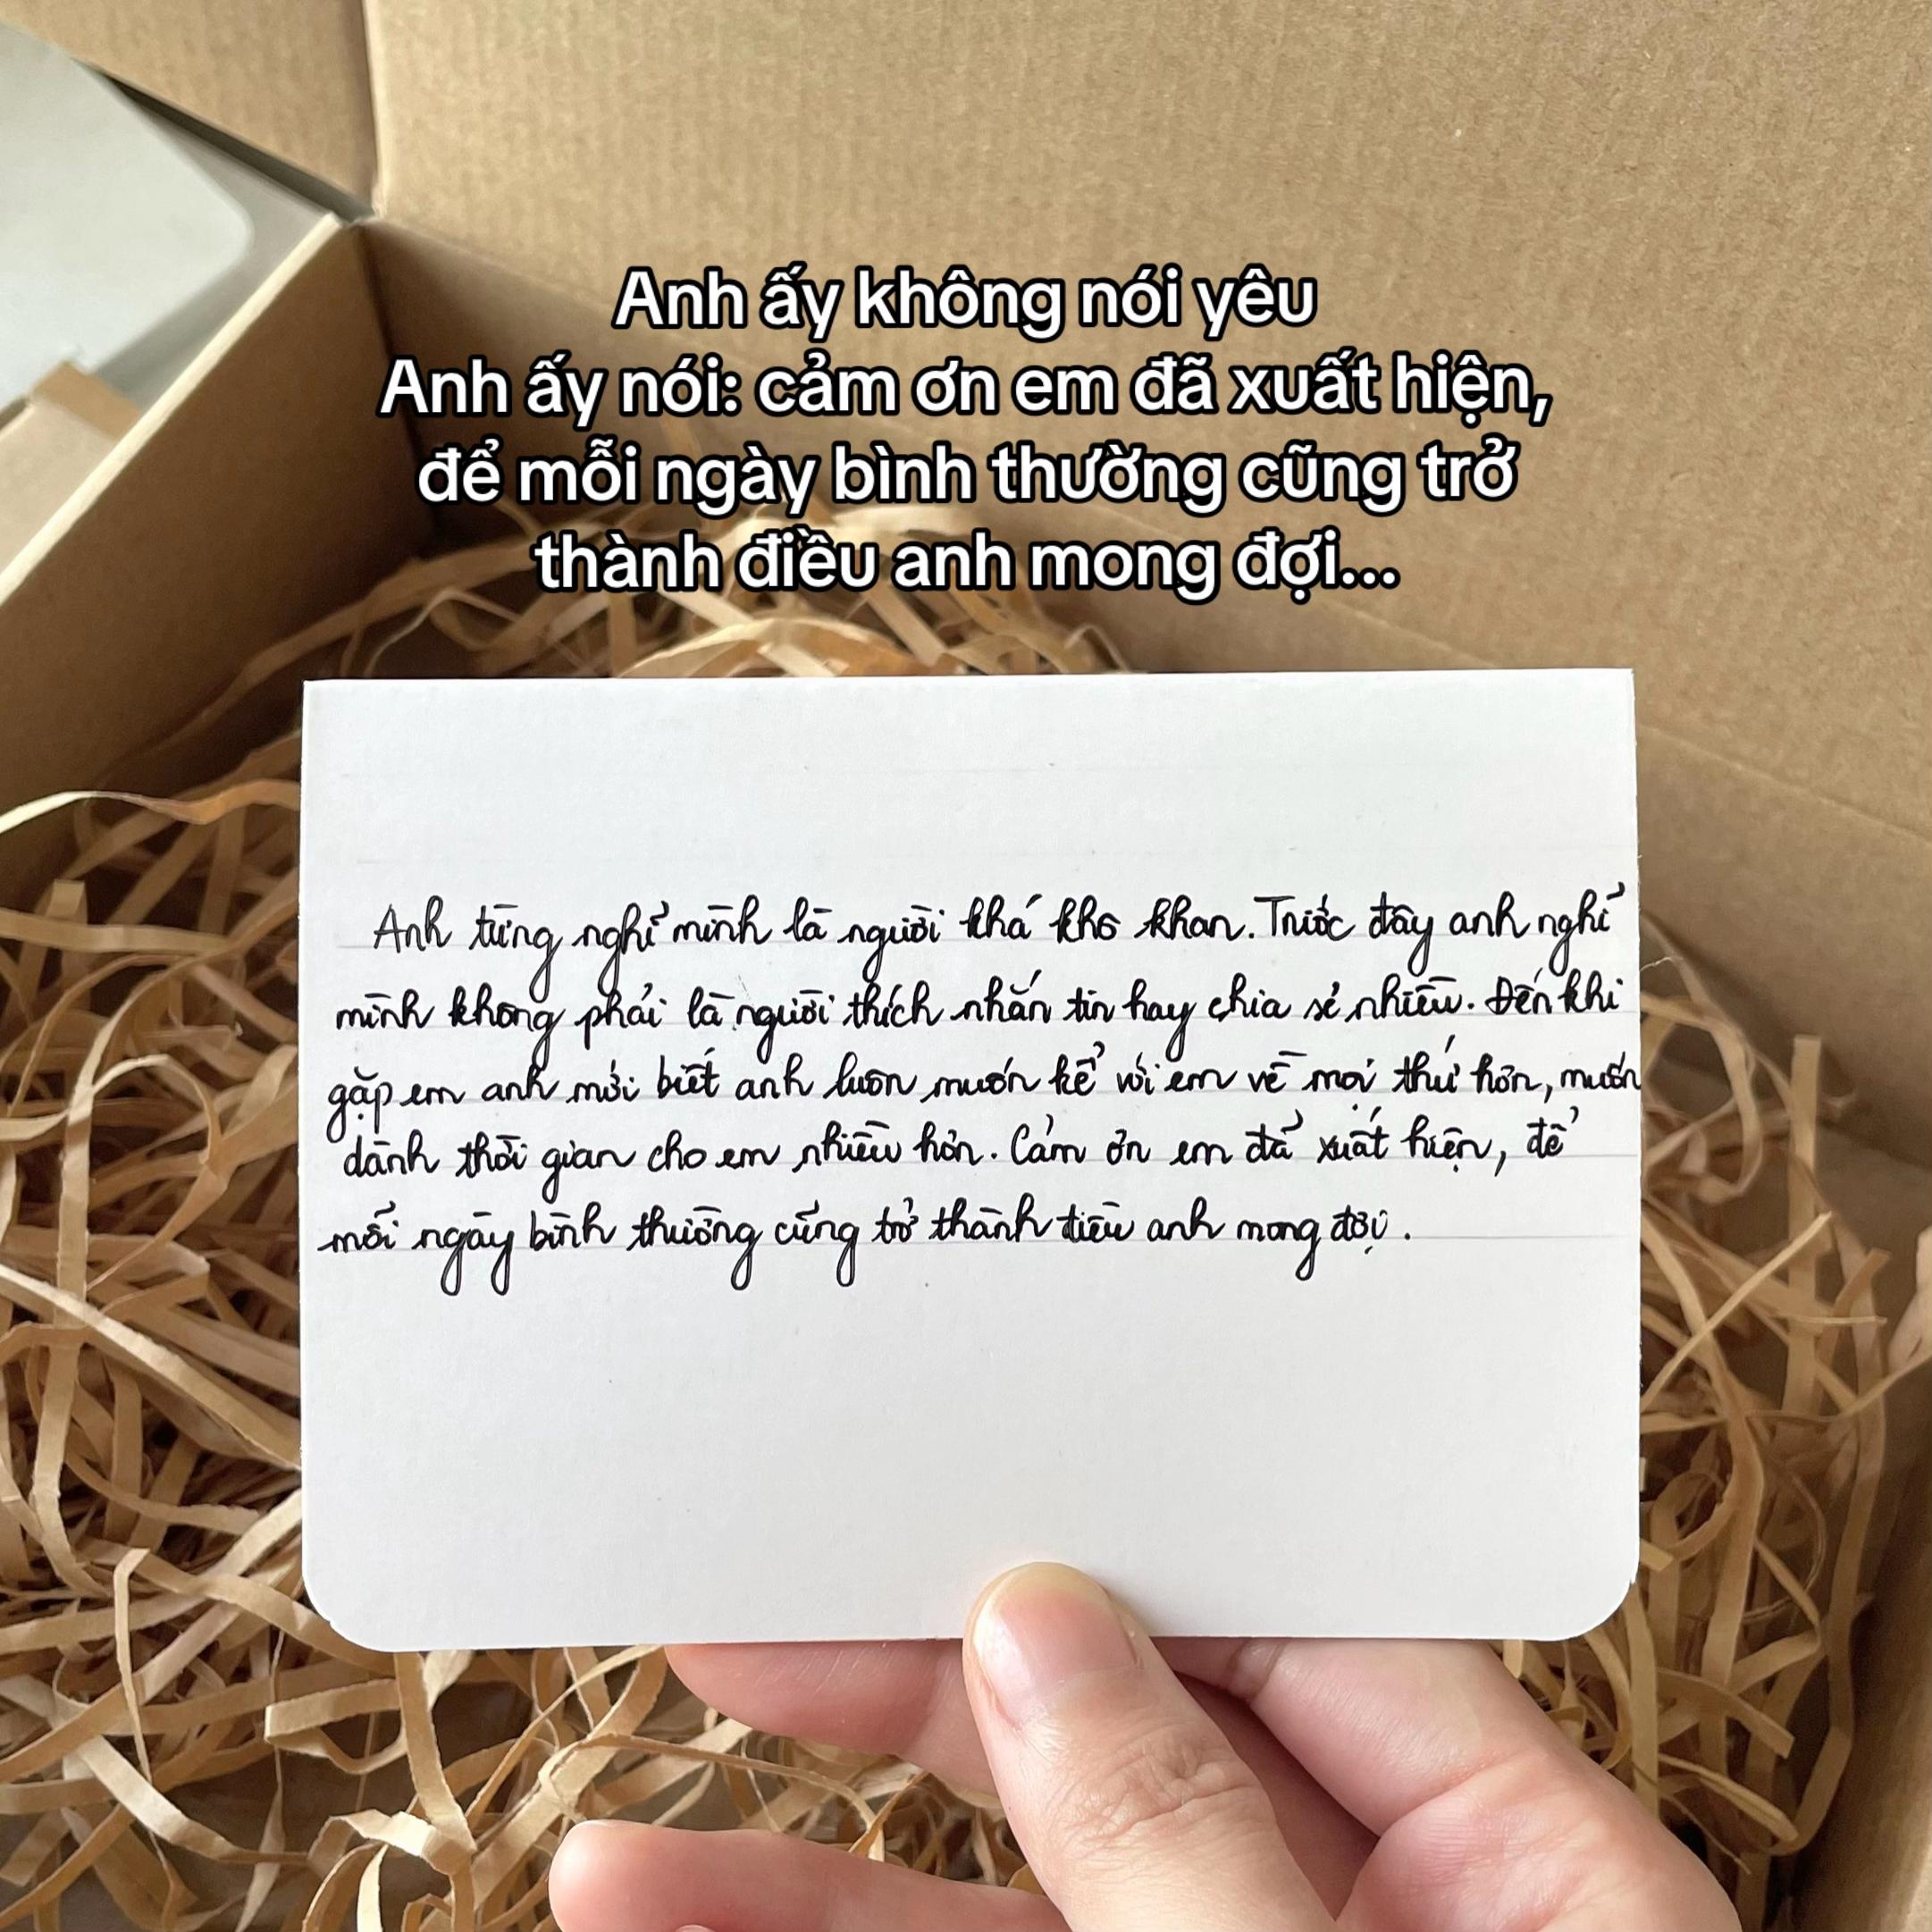 Anh ấy không nói yêu
Anh ấy nói: cảm ơn em đã xuất hiện,
để mỗi ngày bình thường cũng trở
thành điều anh mong đợi...
Anh từng nghĩ mình là người khá khô khan. Trước đây anh nghĩ
mình không phải là người thích nhắn tin hay chia sẻ nhiều. Đến khi
gặp em anh mới biết anh luôn muốn kể với em về mọi thứ hơn, muốn
dành thời gian cho em nhiều hơn. Cảm ơn em đã xuất hiện, để
mỗi ngày bình thường cũng trở thành điều anh mong đợi.